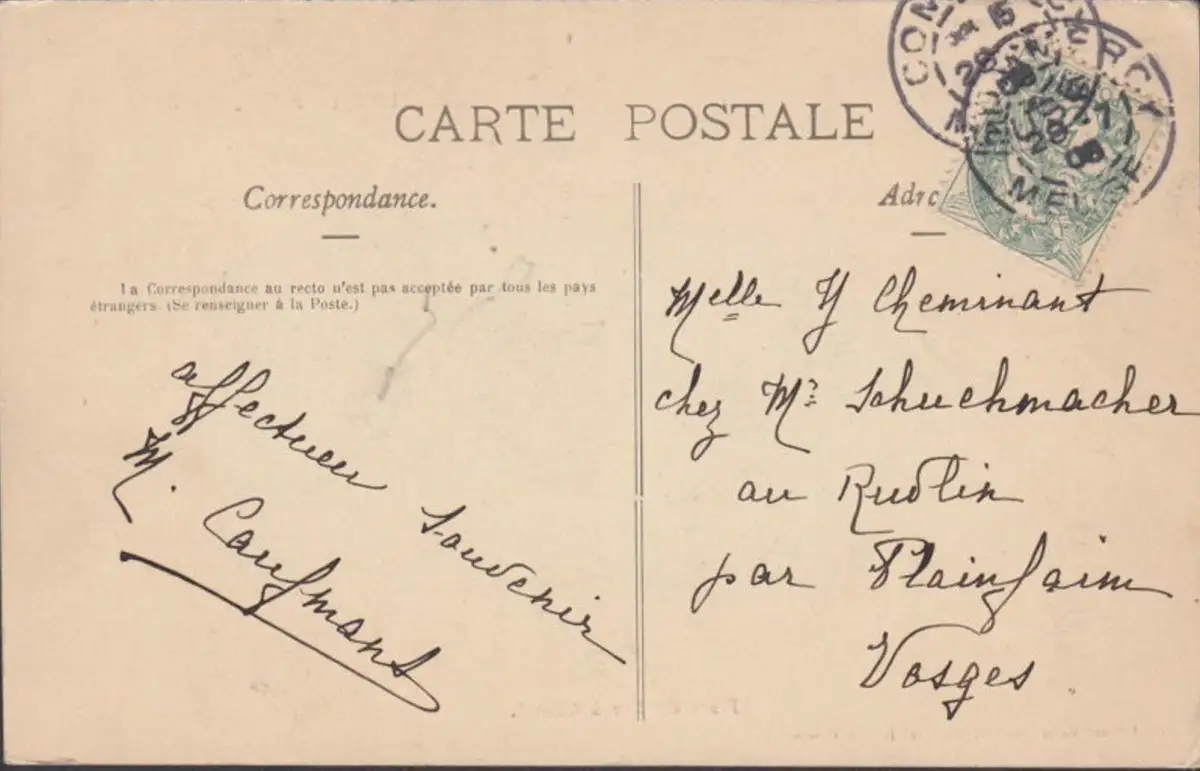 CARTE POSTALE
Correspondance.
La Correspondance au recto n'est pas acceptée par tous les pays
étrangers (Se renseigner à la Poste.)
affectueu souvenir
M. Caufmant
Adre
Melle Y Cheminant
chez Mr Schuchmacher
au Rudlin
par Plainfaim
Vosges
COM RCY
MEUSE